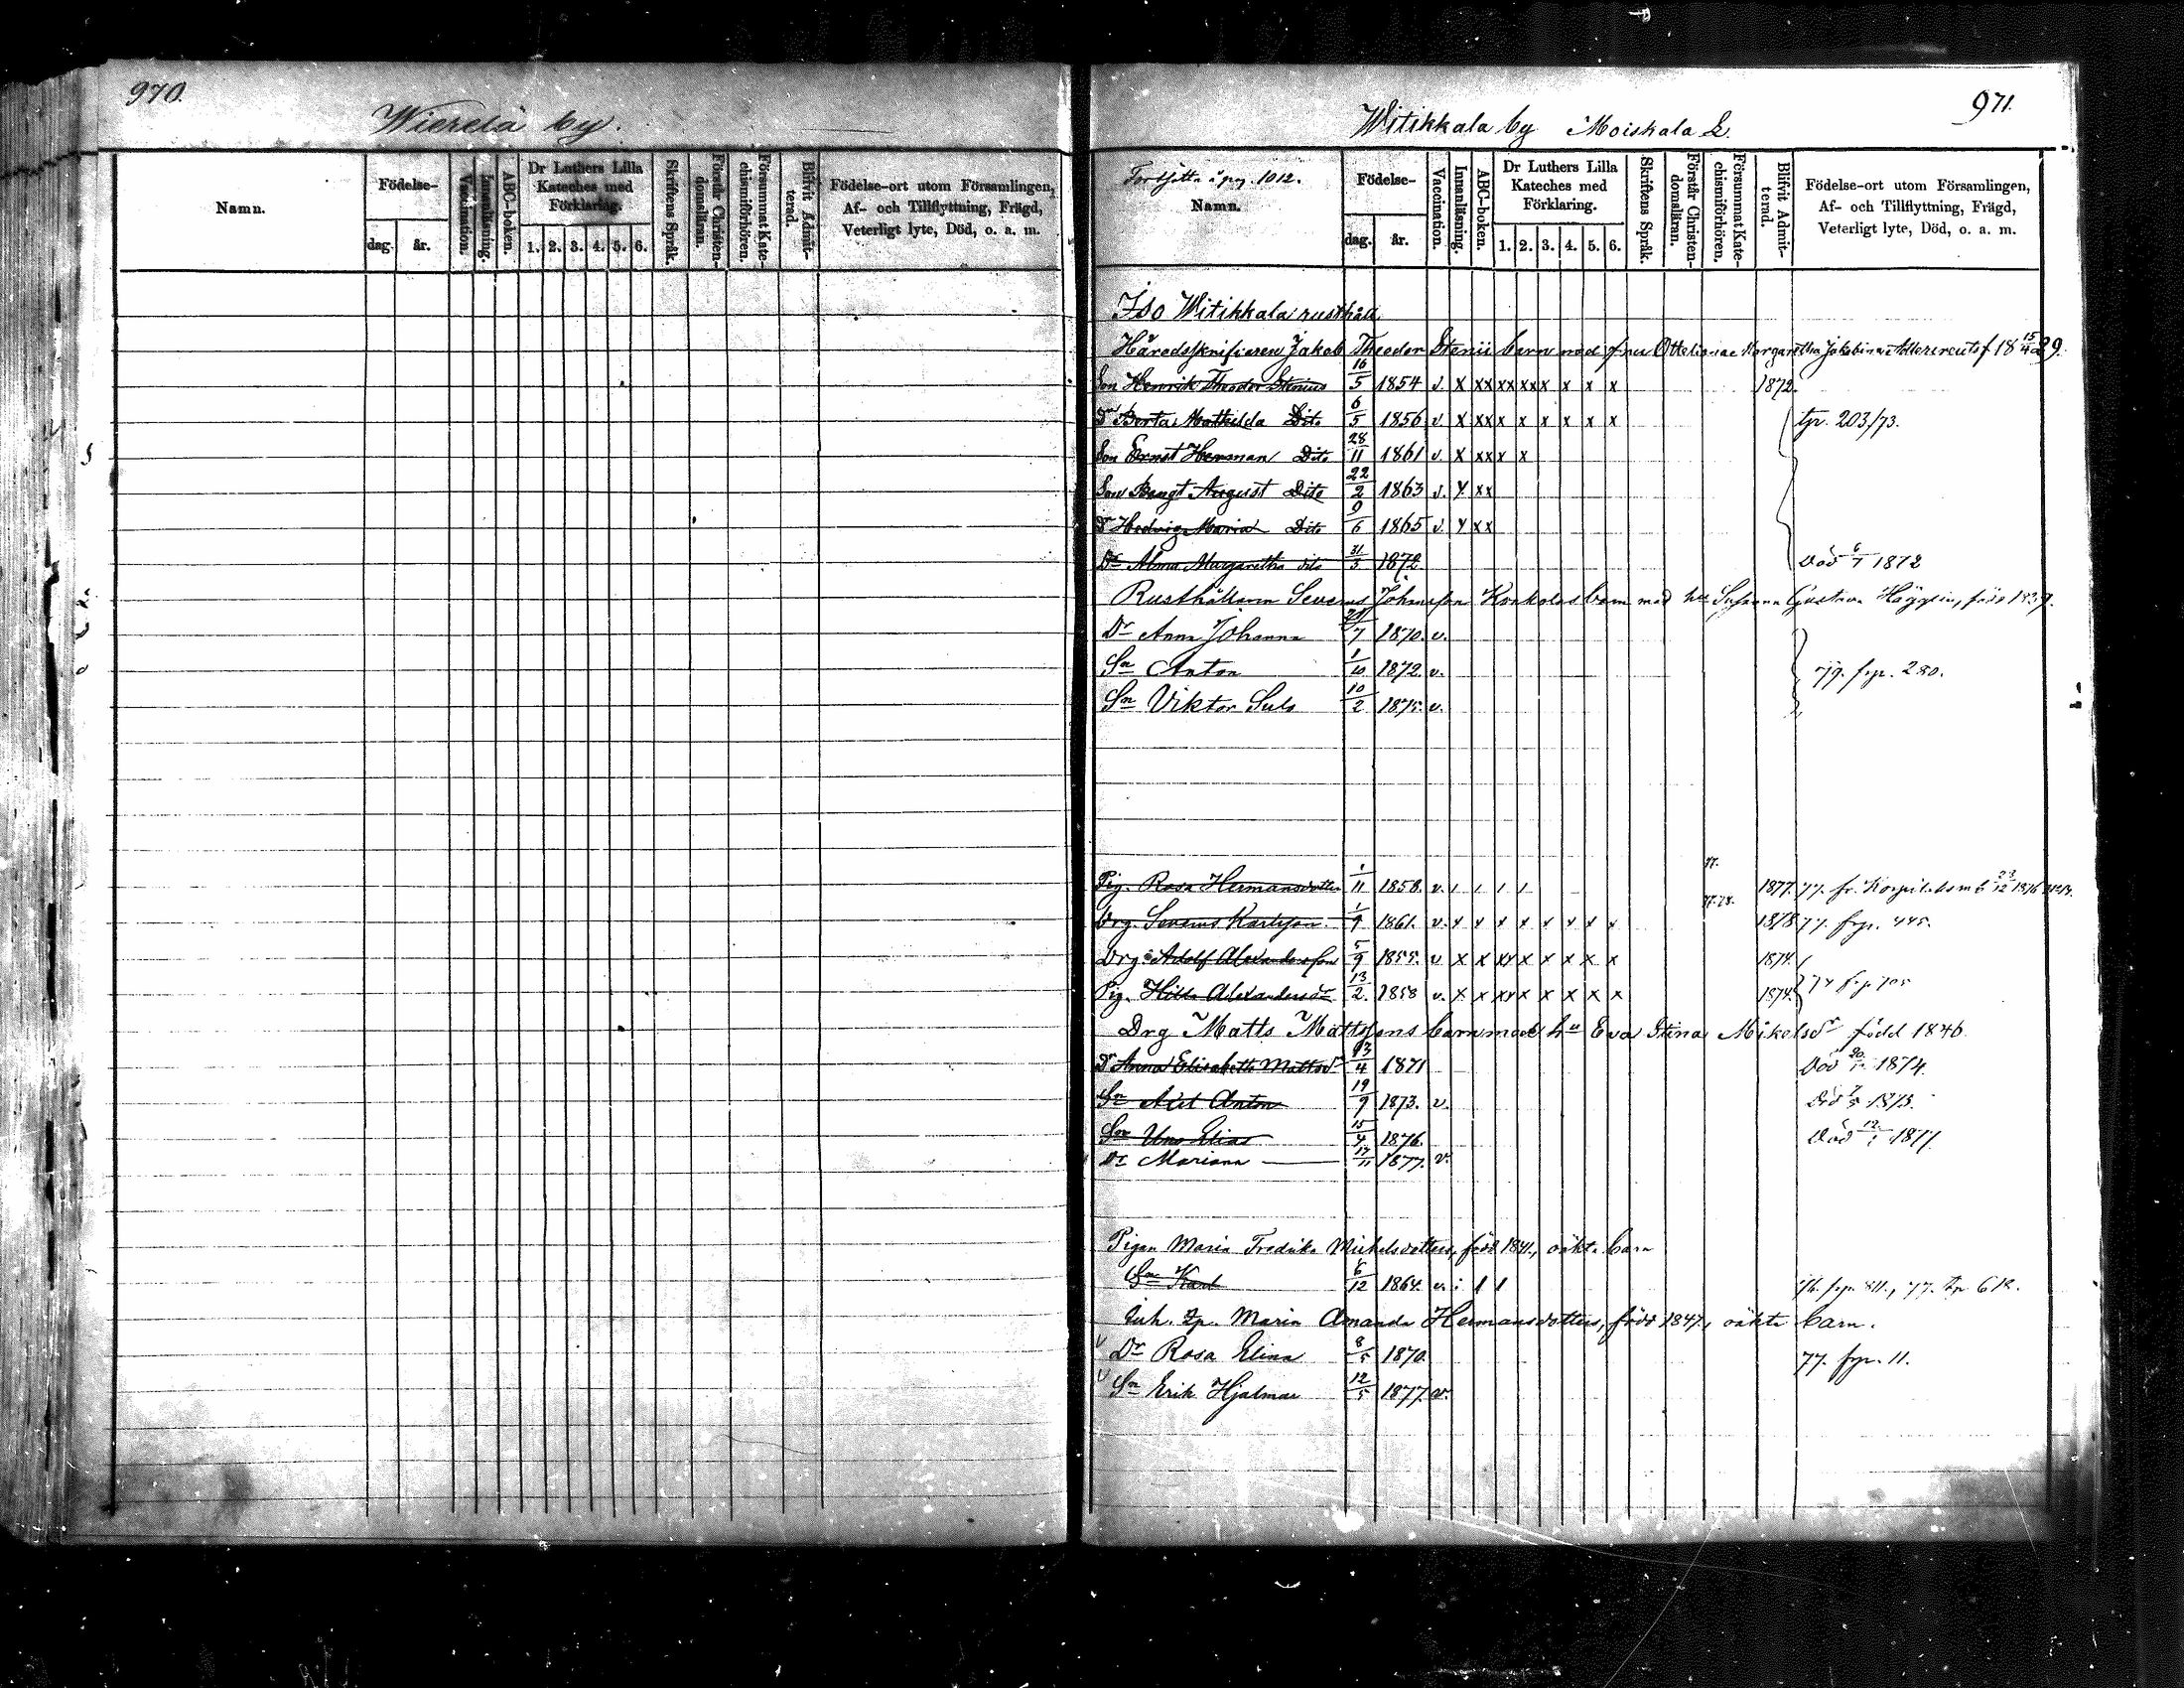 970.
Wierelä by.
Namn.
Födelse-
dag.
år.
Vaccination.
Innanläsning.
ABC-boken.
Dr Luthers Lilla
Kateches med
Förklaring.
1. 2. 3. 4. 5. 6.
Skriftens Språk.
Förstår Christen-
domsläran.
Försummat Kate-
chismiförhören.
Blifvit Admit-
terad.
Födelse-ort utom Församlingen,
Af- och Tillflyttning, Frägd,
Veterligt lyte, Död, o. a. m.
971.
Witikkala by Moiskala L.
Fortsätta å pag. 1012.
Namn.
Födelse-
dag.
år.
Vaccination.
Innanläsning.
ABC-boken.
Dr Luthers Lilla
Kateches med
Förklaring.
1. 2. 3. 4. 5. 6.
Skriftens Språk.
Förstår Christen-
domsläran.
Försummat Kate-
chismiförhören.
Blifvit Admit-
terad.
Födelse-ort utom Församlingen,
Af- och Tillflyttning, Frägd,
Veterligt lyte, Död, o. a. m.
Iso Witikkala rusthåll
Häradsskrifvaren Jakob Theodor Stenii barn med fru Ottelianae Margaretha Jakobinae f 18 15/4 29.
Son Henrik Theodor Stenius 16/5 1854 v. x xx xx xx x x x x 1872.
Dr Berta Mathilda Dito 6/5 1856 v. x xx x x x x x x tp. 203/73.
Son Ernst Herman Dito 28/11 1861 v. x xx x x
Son Bengt August Dito 22/2 1863 v. x xx
Dr Hedvig Maria Dito 9/6 1865 v. x xx
Dr Alma Margaretha dito 31/5 1872 död 6/7 1872
Rusthållaren Severus Johansson Konkolas barn med hu Susanna Gustava Häggqvist, född 1839.
Dr Anna Johanna 7 1870. v.
Sn Anton 1/10 1872. v. 79. frp. 280.
Sn Viktor Suls 10/2 1875. v.
77.
Pig. Rosa Hermansdotter 1/11 1858. v. 1877. 77. fr.
77.78.
Drg. Severus Karlsson 1/9 1861. v. x x x x x x x x 1878 77. frp. 445.
Drg. Adolf Alexandersson 5/9 1855. v x x xx x x x x x 1874.
Pig. Hilda Alexandersdr 13/2. 1858 v. x x xx x x x x x 1874. 74 frp 705
Drg Matts Mattssons barn med hu Eva Stina Mikelsdr född 1846.
Dr Anna Elisabeth Mattsdr 13/4 1871 död 1874.
Sn Axel Anton 19/9 1873. v. Död 1873.
Sn Uno Elias 15/4 1876. död 1877
Dr Mariana 17/11 1877. v.
Pigan Maria Fredrika Mickelsdotters, född 1841, oäkta barn
Sn Karl 6/12 1864. v. frp. 811., 77. tp 612.
Inh. Maria Amanda Hermansdotters, född 1847, oäkta barn.
Dr Rosa Elina 8/5 1870. 77. frp. 11.
Sn Erik Hjalmar 12/5 1877. v.